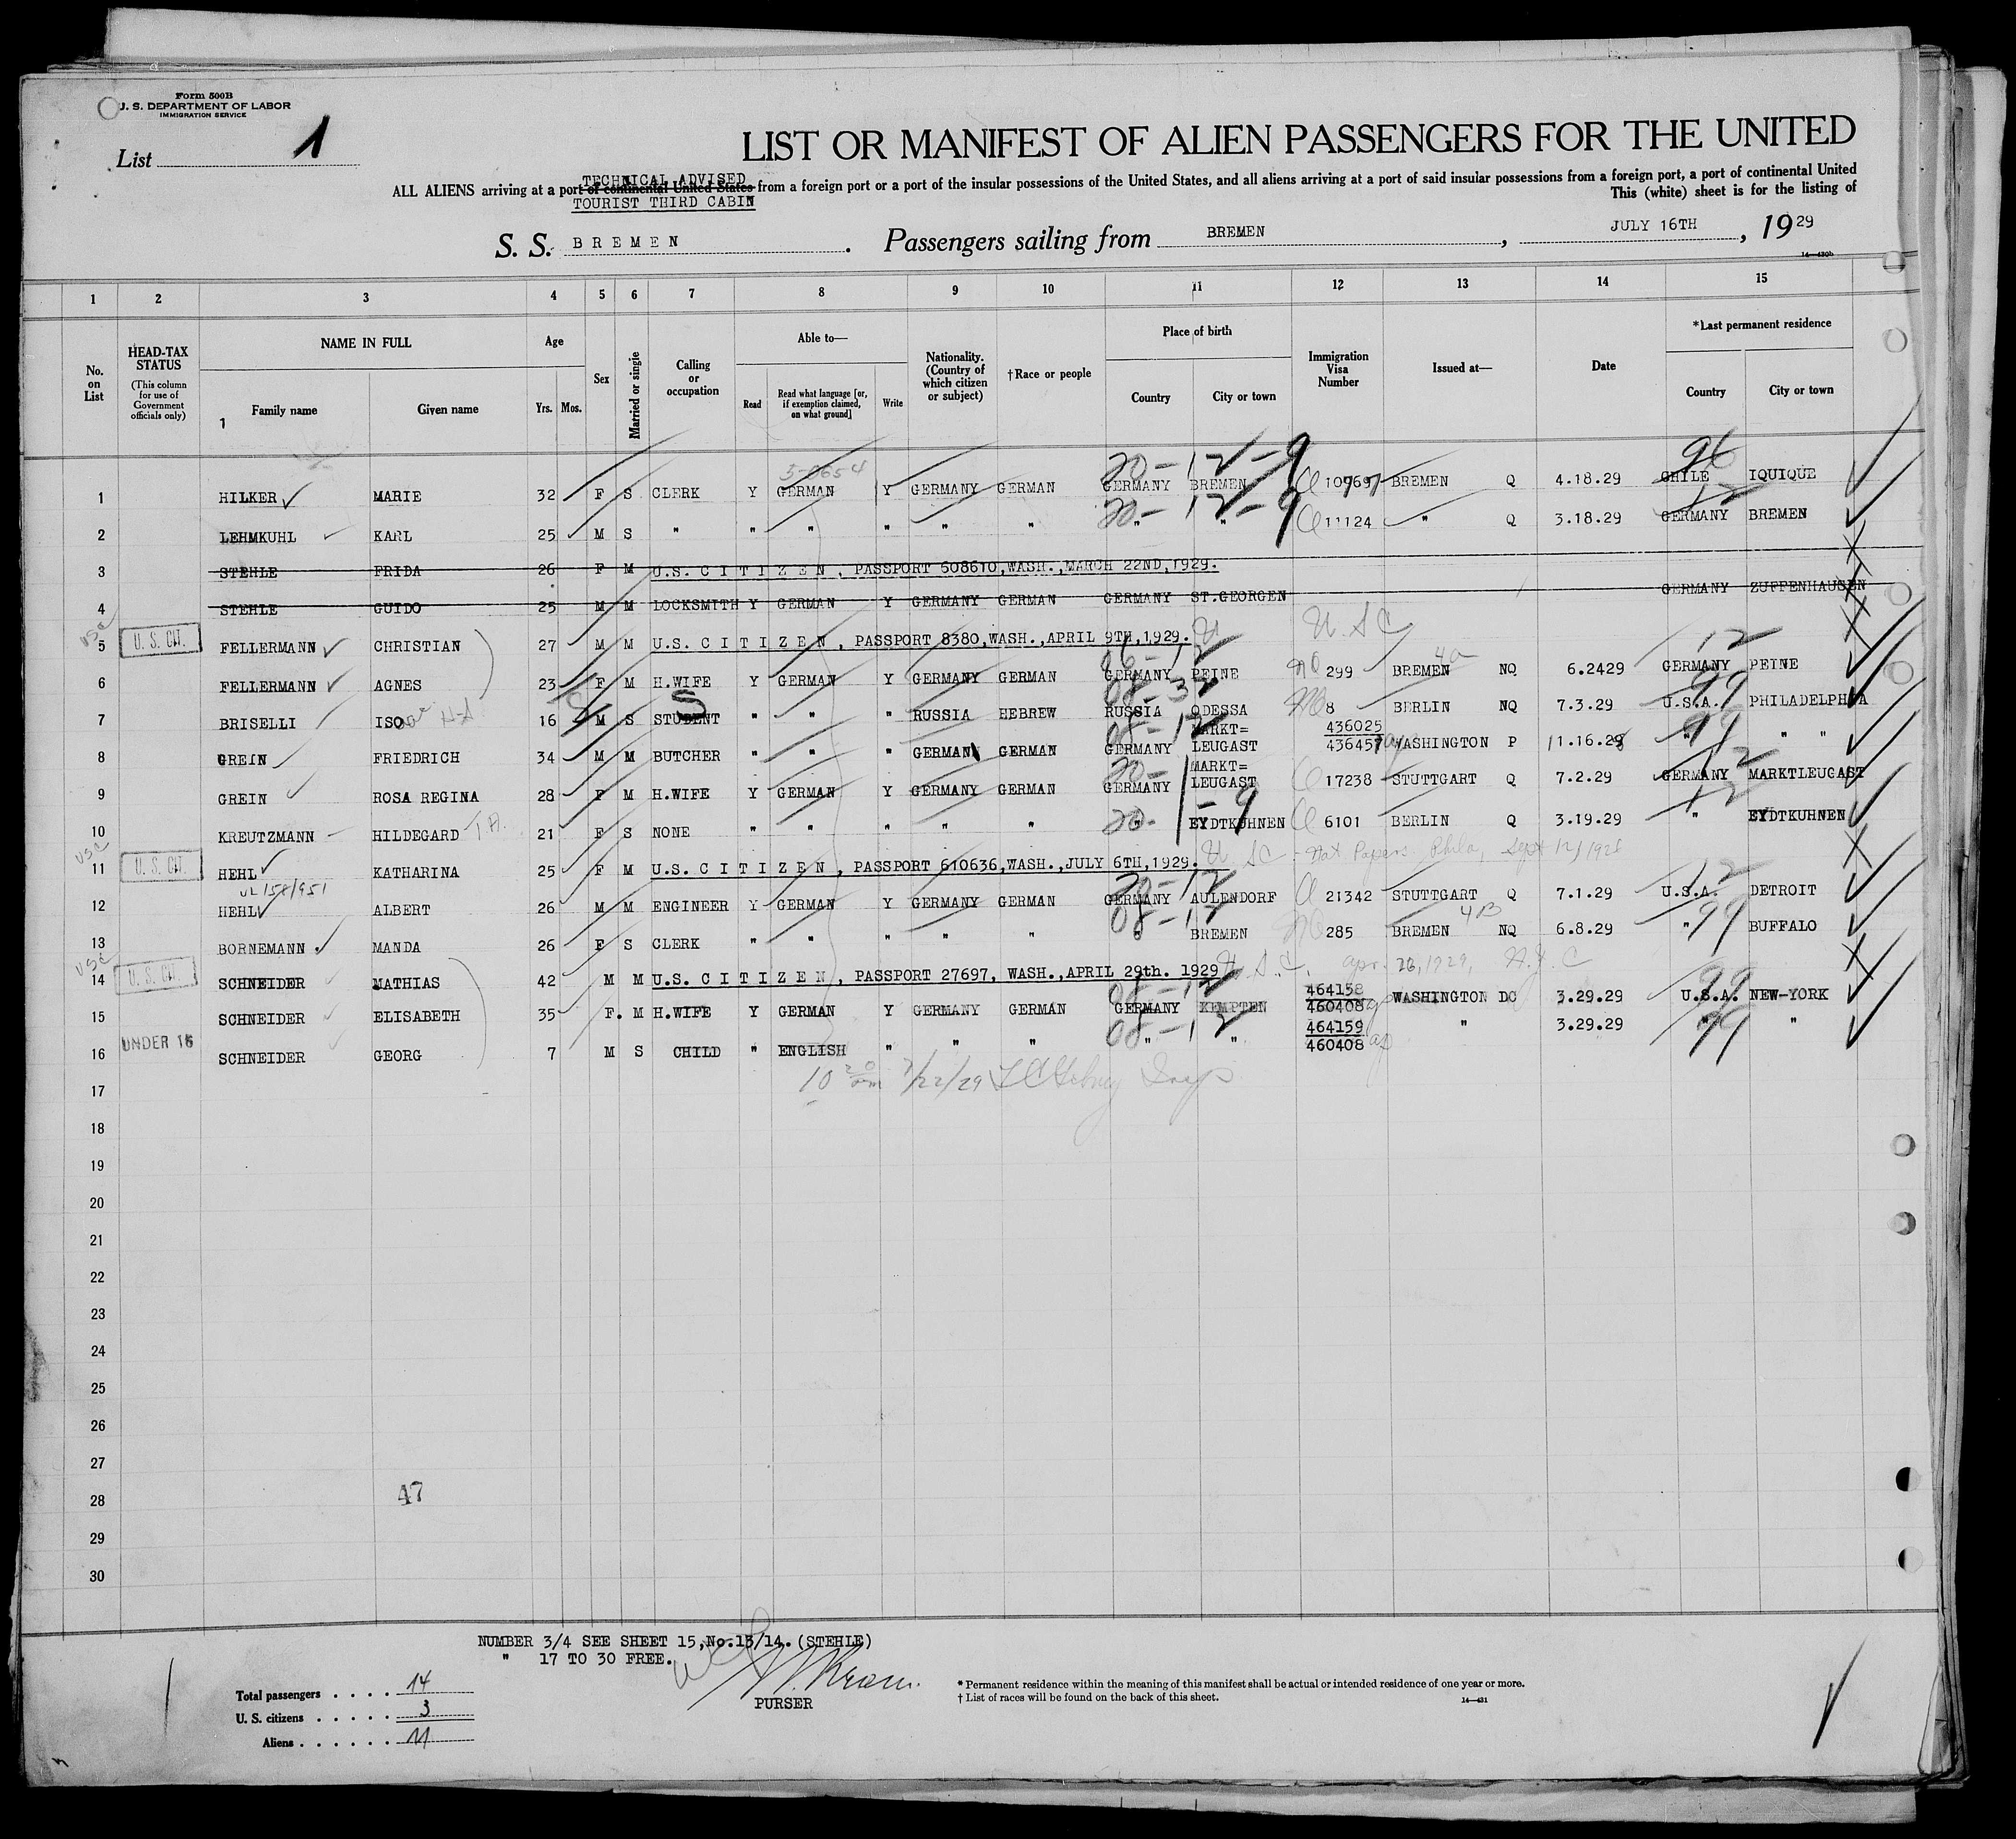 Form 500B
U. S. DEPARTMENT OF LABOR
IMMIGRATION SERVICE
List 1
LIST OR MANIFEST OF ALIEN PASSENGERS FOR THE UNITED
TECHNICAL ADVISED
ALL ALIENS arriving at a port of continental United States from a foreign port or a port of the insular possessions of the United States, and all aliens arriving at a port of said insular possessions from a foreign port, a port of continental United
TOURIST THIRD CABIN
This (white) sheet is for the listing of
S. S. BREMEN. Passengers sailing from BREMEN, JULY 16TH, 1929
14—430b
1 2 3 4 5 6 7 8 9 10 11 12 13 14 15
No. on List
HEAD-TAX STATUS (This column for use of Government officials only)
NAME IN FULL
Family name Given name
1
Age
Yrs. Mos.
Sex
Married or single
Calling or occupation
Able to—
Read Read what language [or, if exemption claimed, on what ground] Write
Nationality. (Country of which citizen or subject)
†Race or people
Place of birth
Country City or town
Immigration Visa Number
Issued at—
Date
*Last permanent residence
Country City or town
20-12-9 96
1 HILKER MARIE 32 F S CLERK Y GERMAN Y GERMANY GERMAN GERMANY BREMEN BREMEN Q 4.18.29 CHILE IQUIQUE
20-12-9 12
2 LEHMKUHL KARL 25 M S " " " " " " " " 11124 " Q 3.18.29 GERMANY BREMEN
3 STEHLE FRIDA 26 F M U.S. CITIZEN, PASSPORT 608610,WASH.,MARCH 22ND,1929.
4 STEHLE GUIDO 25 M M LOCKSMITH Y GERMAN Y GERMANY GERMAN GERMANY ST.GEORGEN GERMANY ZUFFENHAUSEN
USC
5 U. S. CIT. FELLERMANN CHRISTIAN 27 M M U.S. CITIZEN, PASSPORT 8380,WASH.,APRIL 9TH,1929. U S C
06-12 4a 12
6 FELLERMANN AGNES 23 F M H.WIFE Y GERMAN Y GERMANY GERMAN GERMANY PEINE 299 BREMEN NQ 6.2429 GERMANY PEINE
S 08-32 99
7 BRISELLI ISO 16 M S STUDENT " " " RUSSIA HEBREW RUSSIA ODESSA 8 BERLIN NQ 7.3.29 U.S.A. PHILADELPHIA
08-12 99
8 GREIN FRIEDRICH 34 M M BUTCHER " " " GERMAN GERMAN GERMANY MARKT= LEUGAST 436025 436457 WASHINGTON P 11.16.28 " " "
20-12-9 12
9 GREIN ROSA REGINA 28 F M H.WIFE Y GERMAN Y GERMANY GERMAN GERMANY MARKT= LEUGAST 17238 STUTTGART Q 7.2.29 GERMANY MARKTLEUGAST
20- 12
10 KREUTZMANN HILDEGARD 21 F S NONE " " " " " " EYDTKUHNEN 6101 BERLIN Q 3.19.29 " EYDTKUHNEN
USC
11 U. S. CIT. HEHL KATHARINA 25 F M U.S. CITIZEN, PASSPORT 610636,WASH.,JULY 6TH,1929. U SC - Nat Papers Phila, Sept 12/1928
20-12 12
12 HEHL ALBERT 26 M M ENGINEER Y GERMAN Y GERMANY GERMAN GERMANY AULENDORF 21342 STUTTGART Q 7.1.29 U.S.A. DETROIT
08-12 4B 99
13 BORNEMANN MANDA 26 F S CLERK " " " " " " BREMEN 285 BREMEN NQ 6.8.29 " BUFFALO
USC
14 U. S. CIT. SCHNEIDER MATHIAS 42 M M U.S. CITIZEN, PASSPORT 27697, WASH.,APRIL 29th. 1929 U.S.C. Apr. 26,1929, N.Y.C
08-12 99
15 SCHNEIDER ELISABETH 35 F. M H.WIFE Y GERMAN Y GERMANY GERMAN GERMANY KEMPTEN 464158 460408 WASHINGTON DC 3.29.29 U.S.A. NEW-YORK
08-12 99
16 UNDER 16 SCHNEIDER GEORG 7 M S CHILD " ENGLISH " " " " " 464159 460408 " 3.29.29 " "
7/22/29
17
18
19
20
21
22
23
24
25
26
27
28 47
29
30
NUMBER 3/4 SEE SHEET 15,No.13/14.(STEHLE)
" 17 TO 30 FREE.
PURSER
Total passengers . . . . 14
U. S. citizens . . . . . 3
Aliens . . . . . . 11
* Permanent residence within the meaning of this manifest shall be actual or intended residence of one year or more.
† List of races will be found on the back of this sheet.
14—431